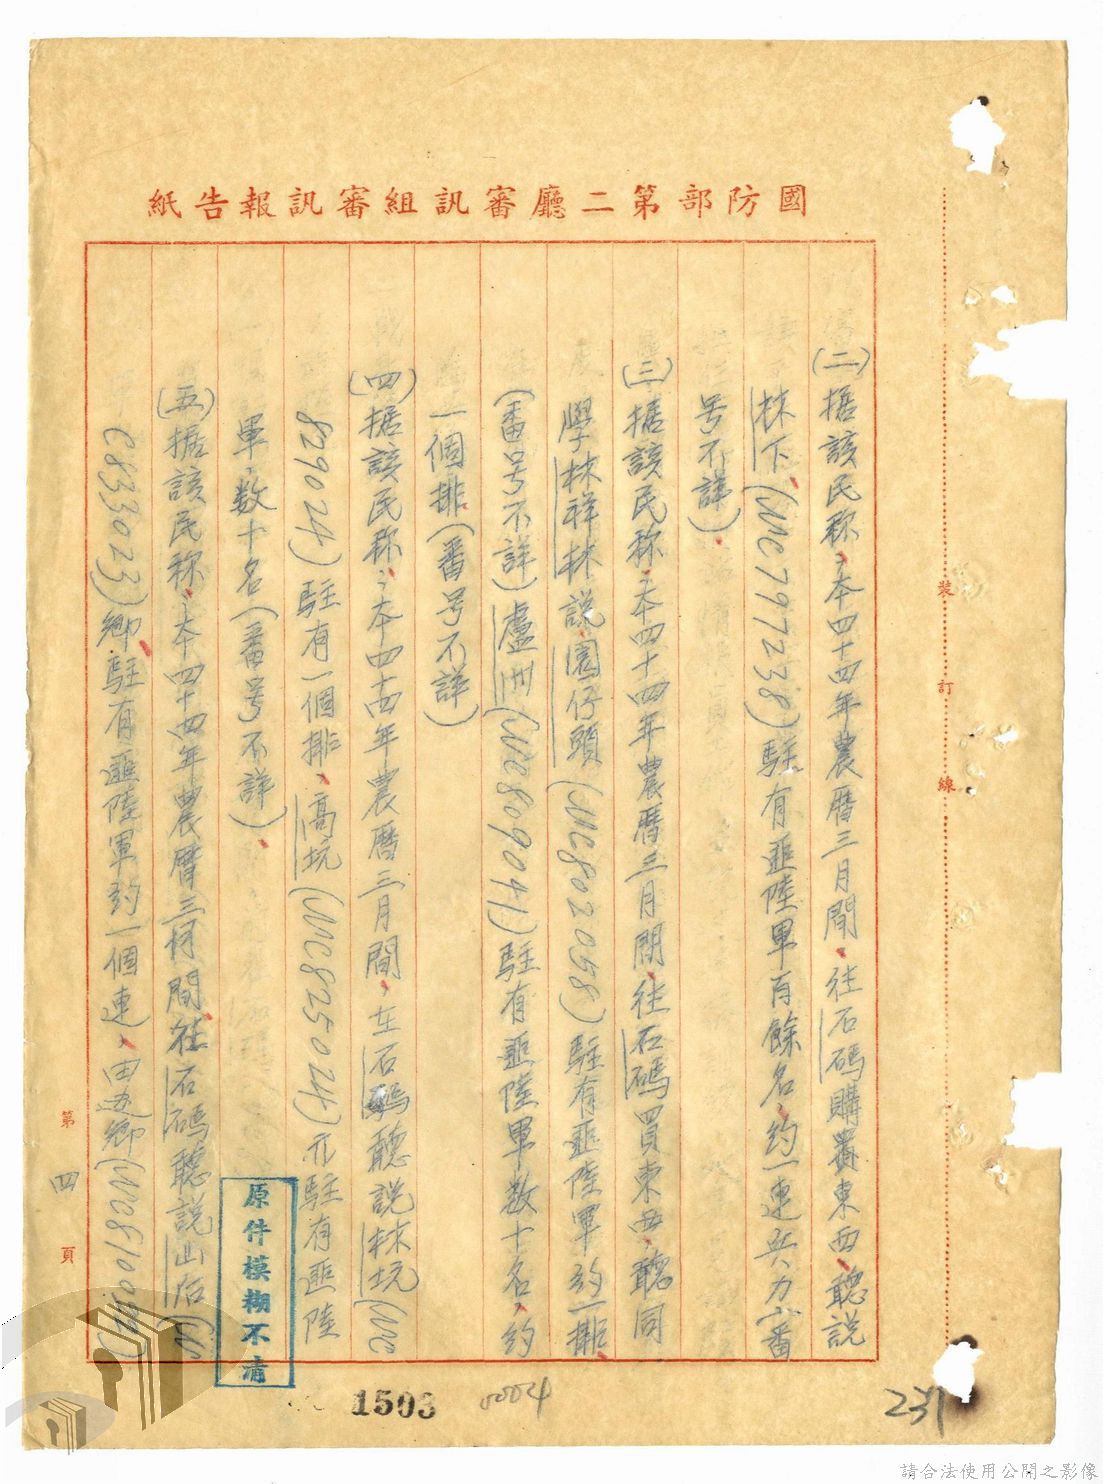 國防部第二廳審訊組審訊報告紙
(二)据該民称：本四十四年農曆三月間、往石碼購賣東西、聽説
林下、(UNC797238)駐有匪陸軍百餘名、約一連兵力(番
号不詳)、
(三)据該民称：本四十四年農曆三月間、往石碼買東西、聽同
學林祥林説園仔頭(UNC802058)駐有匪陸軍約一排、
(番号不詳)盧洲(UNC809041)駐有匪陸軍数十名，約
一個排(番号不詳)
(四)据該民称：本四十四年農曆三月間，在石碼聽説林坑(UNC
829024)駐有一個排、高坑(UNC825024)亦駐有匪陸
軍，数十名(番号不詳)、
(五)据該民称：本四十四年農曆三月間往石碼聽説山后(UN
C833023)鄉、駐有匪陸軍約一個連、田边鄉(UNC8100)
第四頁
裝訂線
原件模糊不清
1503
0004
231
請合法使用公開之影像